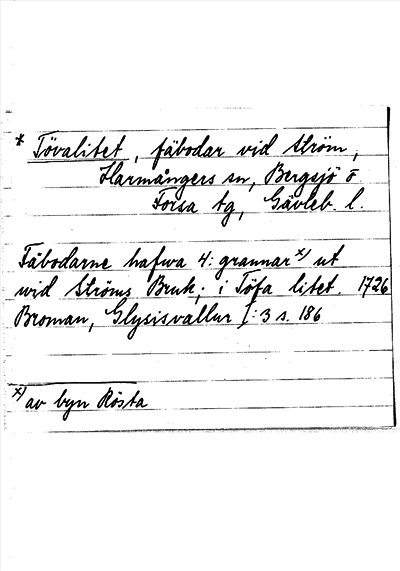 * Tövalitet, fäbodar vid Ström,
Harmångers sn, Bergsjö o
Forsa tg, Gävleb. l.
Fäbodarne hafwa 4: grannar x) ut
wid Ströms Bruk; i Töfa litet. 1726
Broman, Glysisvallur I: 3 s. 186
x) av byn Rösta